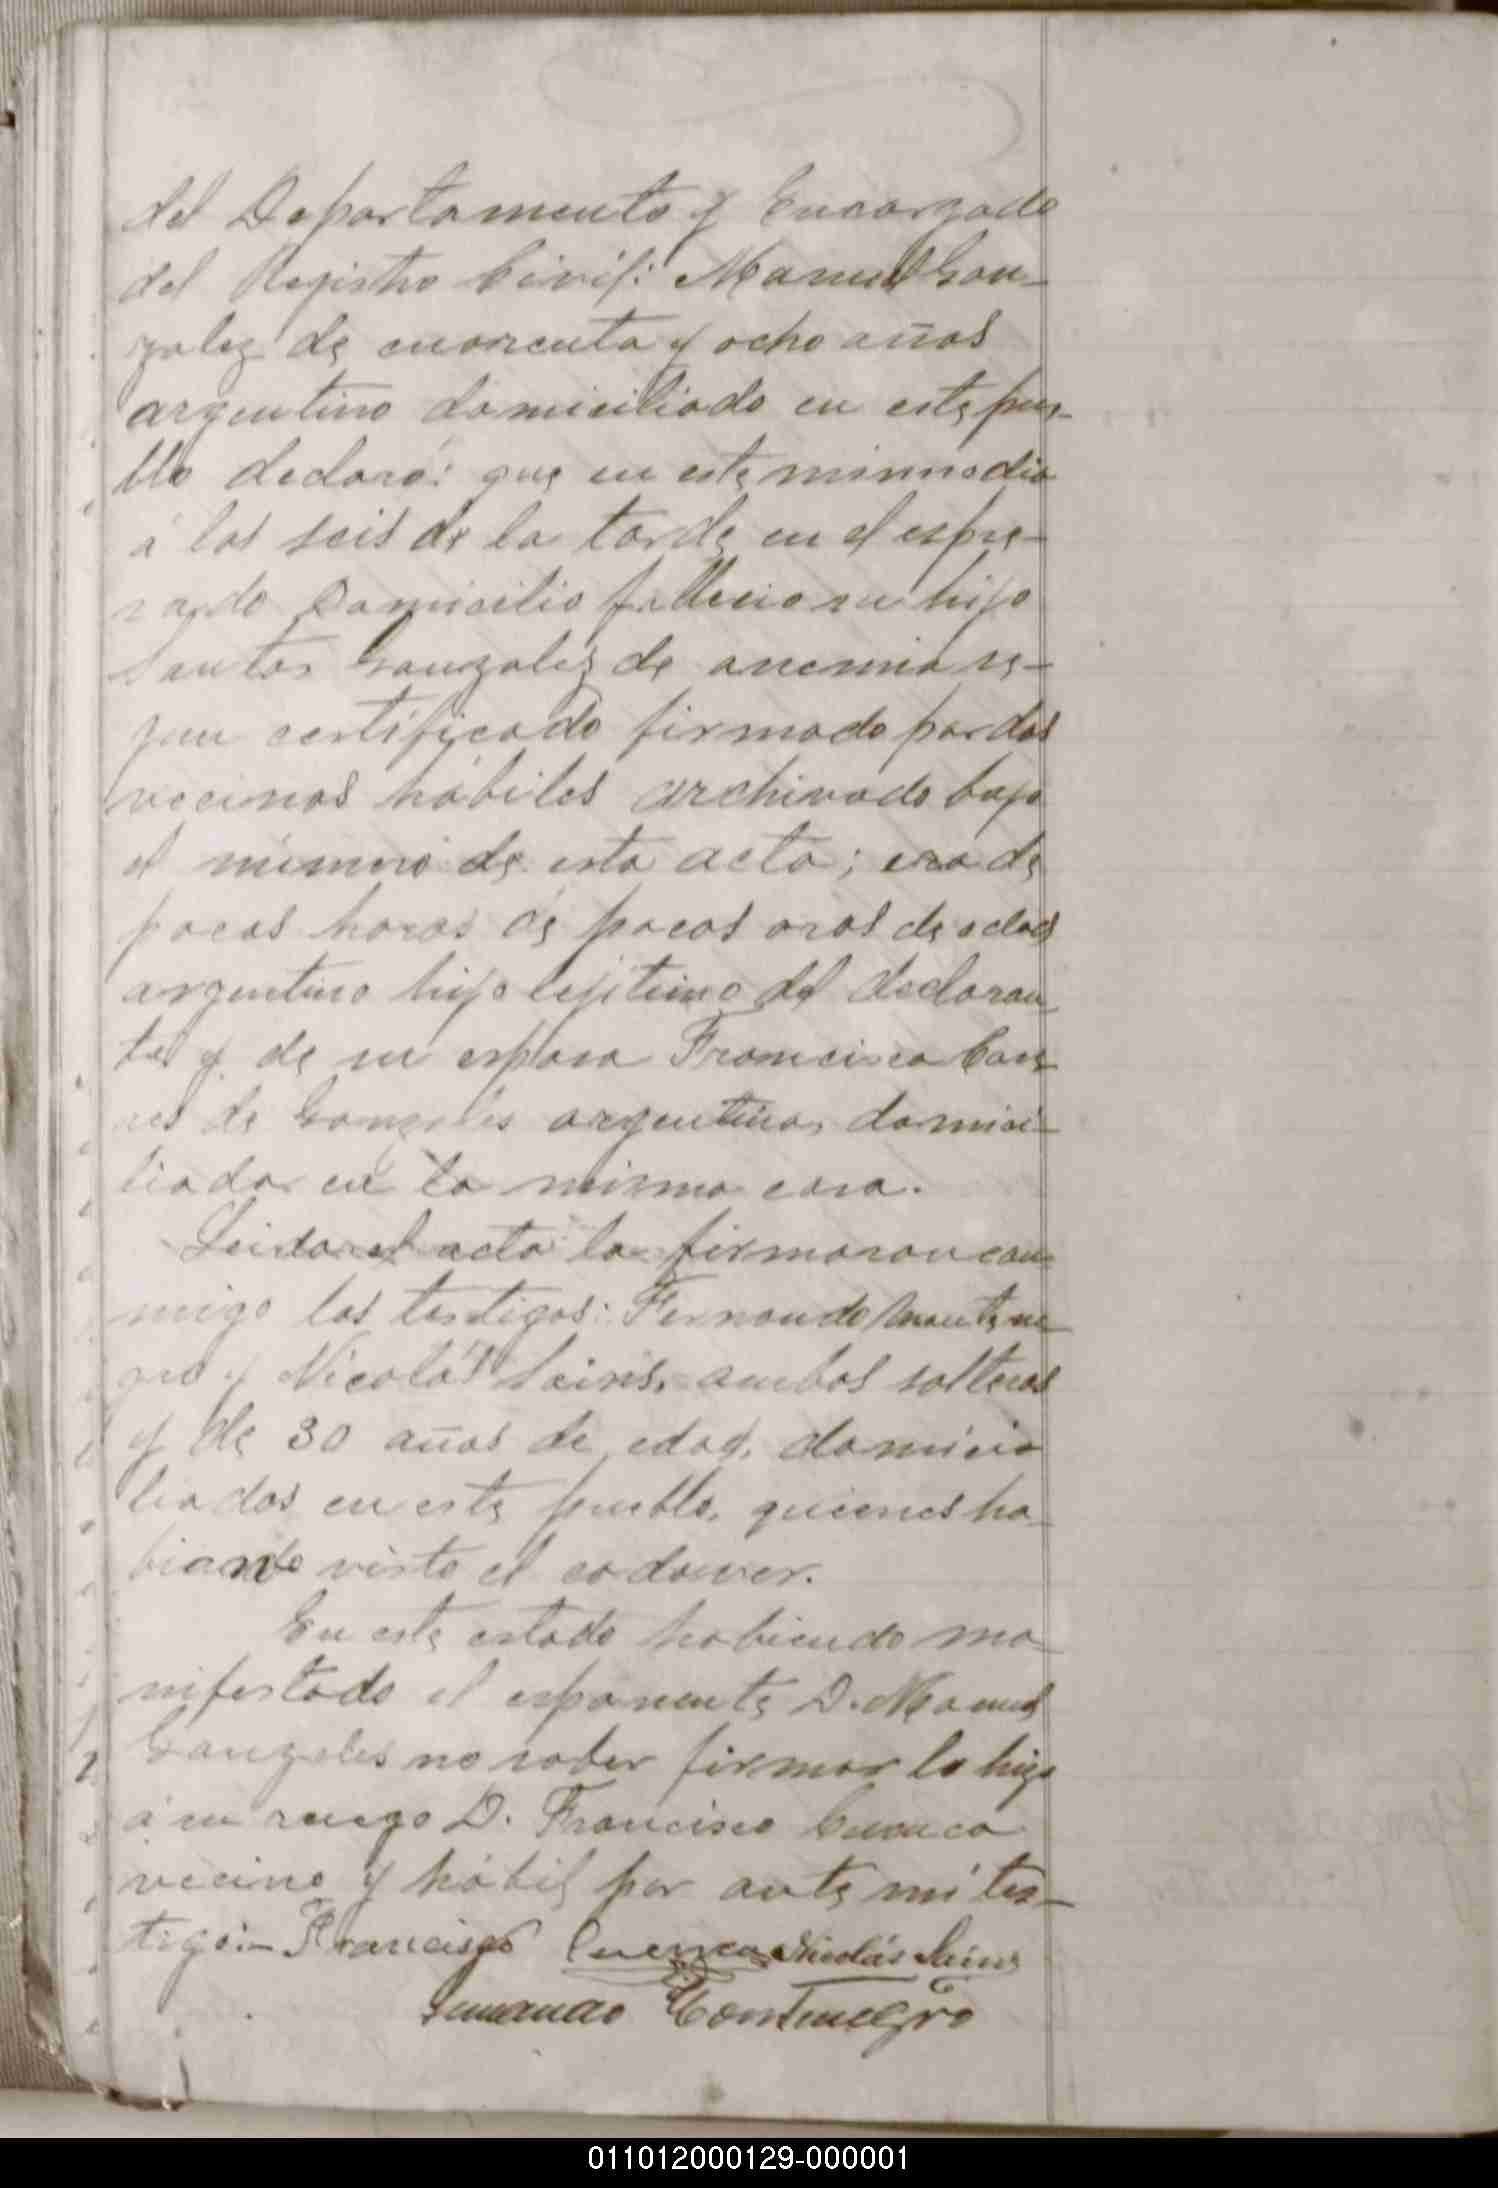 del Departamento y Encargado
del Registro Civil: Manuel Gon-
zalez de cuarenta y ocho años
argentino domiciliado en este pue-
blo declaró: que en este mismo dia
á las seis de la tarde en el espre-
sado Domicilio fallecio su hijo
Santos Gonzalez de anemia se-
gun certificado firmado por dos
vecinos hábiles archivado bajo
el número de esta acta; era de
pocas horas de pocas oras de edad
argentino hijo lejitimo del declaran
te y de su esposa Francisca
de Gonzales argentina, domici-
liada en la misma casa.
Leida el acta la firmaron con-
migo los testigos: Fernando Montene-
gro y Nicolás Sains, ambos solteros
y de 30 años de edad, domici
liados en este pueblo, quienes ha-
biando visto el cadaver.
En este estado habiendo ma-
nifestado el esponente D. Manuel
Gonzales no saber firmar lo hizo
á su ruego D. Francisco Cuenca
vecino y hábil por ante mi tes-
tigo:- Francisco Cuenca Nicolás Sains
Fernando Montenegro
011012000129-000001